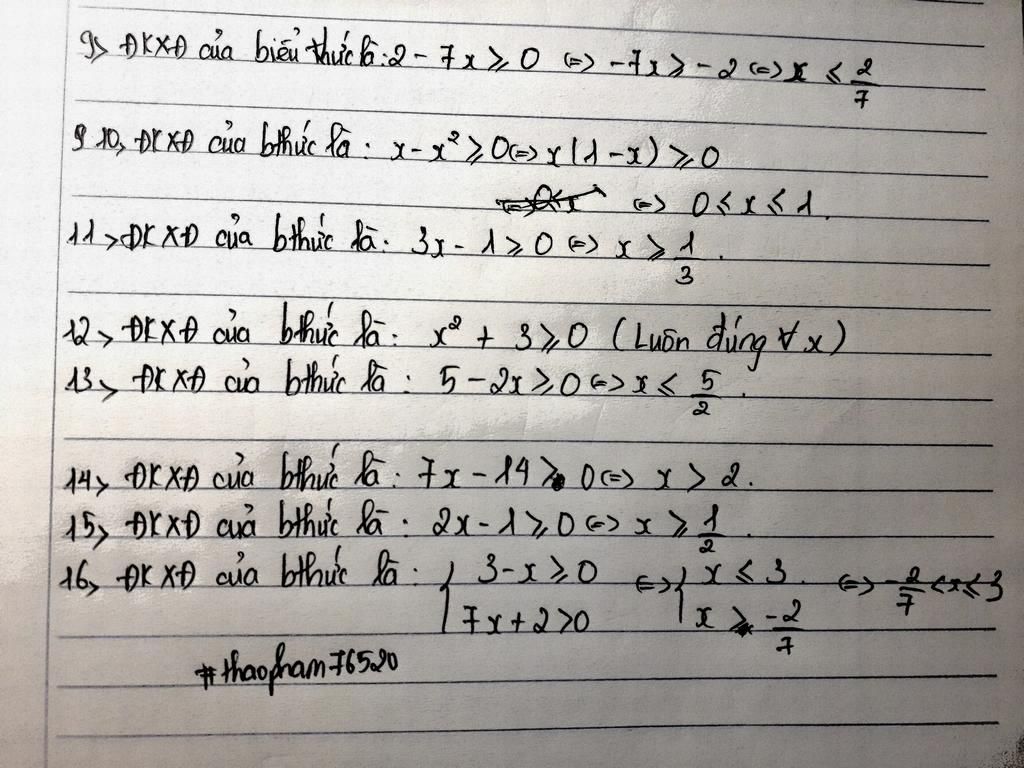 9> ĐKXĐ của biểu thức là: 2 - 7x ⩾ 0 <=> -7x ⩾ -2 <=> x ⩽ 2/7
9 10, ĐKXĐ của bthức là: x - x² ⩾ 0 <=> x(1 - x) ⩾ 0
<=> 0 ⩽ x ⩽ 1.
11> ĐKXĐ của bthức là: 3x - 1 ⩾ 0 <=> x ⩾ 1/3.
12> ĐKXĐ của bthức là: x² + 3 ⩾ 0 (Luôn đúng ∀x)
13> ĐKXĐ của bthức là: 5 - 2x ⩾ 0 <=> x ⩽ 5/2.
14> ĐKXĐ của bthức là: 7x - 14 > 0 <=> x > 2.
15> ĐKXĐ của bthức là: 2x - 1 ⩾ 0 <=> x ⩾ 1/2.
16> ĐKXĐ của bthức là: { 3 - x ⩾ 0 <=> { x ⩽ 3. <=> -2/7 < x ⩽ 3
7x + 2 > 0 x > -2/7
#thaopham76520